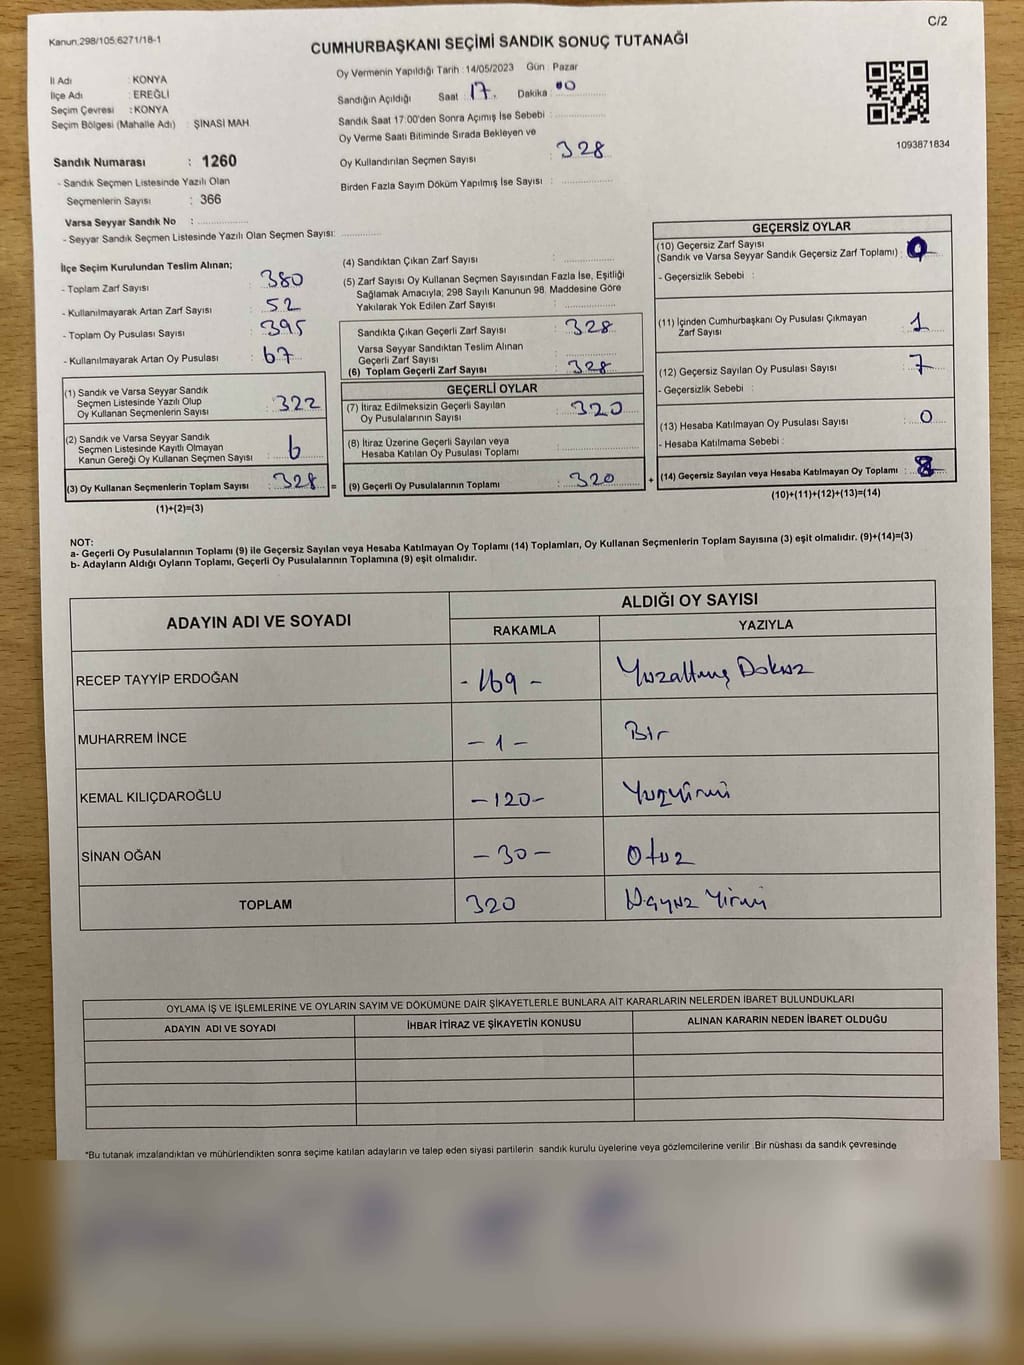 C/2
Kanun:298/105:6271/18-1
CUMHURBAŞKANI SEÇİMİ SANDIK SONUÇ TUTANAĞI
İl Adı : KONYA
İlçe Adı : EREĞLİ
Seçim Çevresi : KONYA
Seçim Bölgesi (Mahalle Adı) : ŞİNASİ MAH
Sandık Numarası : 1260
- Sandık Seçmen Listesinde Yazılı Olan
Seçmenlerin Sayısı : 366
Varsa Seyyar Sandık No :
- Seyyar Sandık Seçmen Listesinde Yazılı Olan Seçmen Sayısı:
Oy Vermenin Yapıldığı Tarih :14/05/2023 Gün : Pazar
Sandığın Açıldığı Saat : 17. Dakika : 00
Sandık Saat 17:00'den Sonra Açımış İse Sebebi :
Oy Verme Saati Bitiminde Sırada Bekleyen ve
Oy Kullandırılan Seçmen Sayısı : 328
Birden Fazla Sayım Döküm Yapılmış İse Sayısı :
1093871834
İlçe Seçim Kurulundan Teslim Alınan;
- Toplam Zarf Sayısı : 380
- Kullanılmayarak Artan Zarf Sayısı : 52
- Toplam Oy Pusulası Sayısı : 395
- Kullanılmayarak Artan Oy Pusulası : 67
(1) Sandık ve Varsa Seyyar Sandık
Seçmen Listesinde Yazılı Olup
Oy Kullanan Seçmenlerin Sayısı : 322
(2) Sandık ve Varsa Seyyar Sandık
Seçmen Listesinde Kayıtlı Olmayan
Kanun Gereği Oy Kullanan Seçmen Sayısı : 6
(3) Oy Kullanan Seçmenlerin Toplam Sayısı : 328 =
(1)+(2)=(3)
(4) Sandıktan Çıkan Zarf Sayısı :
(5) Zarf Sayısı Oy Kullanan Seçmen Sayısından Fazla İse, Eşitliği
Sağlamak Amacıyla; 298 Sayılı Kanunun 98. Maddesine Göre
Yakılarak Yok Edilen Zarf Sayısı :
Sandıkta Çıkan Geçerli Zarf Sayısı : 328
Varsa Seyyar Sandıktan Teslim Alınan
Geçerli Zarf Sayısı :
(6) Toplam Geçerli Zarf Sayısı : 328
GEÇERLİ OYLAR
(7) İtiraz Edilmeksizin Geçerli Sayılan
Oy Pusulalarının Sayısı : 320
(8) İtiraz Üzerine Geçerli Sayılan veya
Hesaba Katılan Oy Pusulası Toplamı :
(9) Geçerli Oy Pusulalarının Toplamı : 320 +
GEÇERSİZ OYLAR
(10) Geçersiz Zarf Sayısı
(Sandık ve Varsa Seyyar Sandık Geçersiz Zarf Toplamı) : 0
- Geçersizlik Sebebi :
(11) İçinden Cumhurbaşkanı Oy Pusulası Çıkmayan
Zarf Sayısı : 1
(12) Geçersiz Sayılan Oy Pusulası Sayısı : 7
- Geçersizlik Sebebi :
(13) Hesaba Katılmayan Oy Pusulası Sayısı : 0
- Hesaba Katılmama Sebebi :
(14) Geçersiz Sayılan veya Hesaba Katılmayan Oy Toplamı : 8
(10)+(11)+(12)+(13)=(14)
NOT:
a- Geçerli Oy Pusulalarının Toplamı (9) ile Geçersiz Sayılan veya Hesaba Katılmayan Oy Toplamı (14) Toplamları, Oy Kullanan Seçmenlerin Toplam Sayısına (3) eşit olmalıdır. (9)+(14)=(3)
b- Adayların Aldığı Oyların Toplamı, Geçerli Oy Pusulalarının Toplamına (9) eşit olmalıdır.
ADAYIN ADI VE SOYADI
ALDIĞI OY SAYISI
RAKAMLA YAZIYLA
RECEP TAYYİP ERDOĞAN - 169 - Yüzaltmış Dokuz
MUHARREM İNCE - 1 - Bir
KEMAL KILIÇDAROĞLU - 120 - Yüzyirmi
SİNAN OĞAN - 30 - Otuz
TOPLAM 320 Üçyüz Yirmi
OYLAMA İŞ VE İŞLEMLERİNE VE OYLARIN SAYIM VE DÖKÜMÜNE DAİR ŞİKAYETLERLE BUNLARA AİT KARARLARIN NELERDEN İBARET BULUNDUKLARI
ADAYIN ADI VE SOYADI İHBAR İTİRAZ VE ŞİKAYETİN KONUSU ALINAN KARARIN NEDEN İBARET OLDUĞU
*Bu tutanak imzalandıktan ve mühürlendikten sonra seçime katılan adayların ve talep eden siyasi partilerin sandık kurulu üyelerine veya gözlemcilerine verilir .Bir nüshası da sandık çevresinde